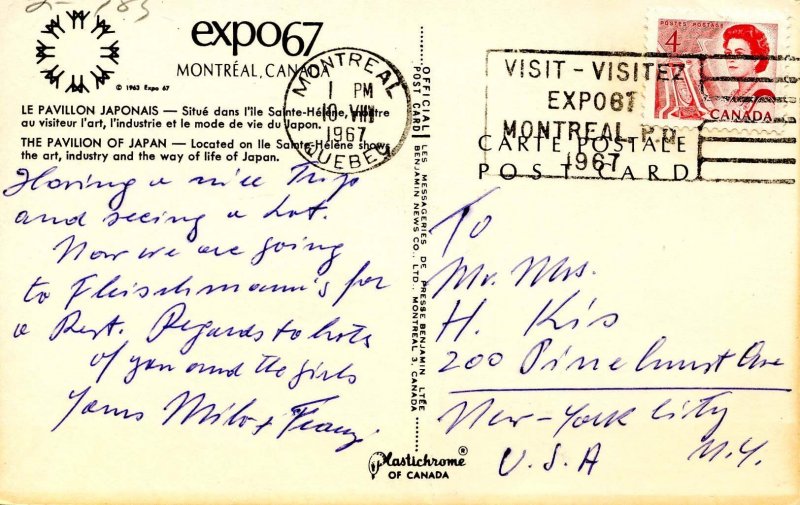 expo67
MONTRÉAL, CANADA
© 1963 Expo 67
LE PAVILLON JAPONAIS — Situé dans l'île Sainte-Hélène, montre
au visiteur l'art, l'industrie et le mode de vie du Japon.
THE PAVILION OF JAPAN — Located on Ile Sainte-Hélène shows
the art, industry and the way of life of Japan.
Having a nice Trip
and seeing a Lot.
Now we are going
to Fleischmann's for
a Rest. Regards to both
of you and the girls
Yours
MONTREAL
1 PM
10 VIII
1967
QUEBEC
OFFICIAL POST CARD
LES MESSAGERIES DE PRESSE BENJAMIN LTÉE
BENJAMIN NEWS CO., LTD., MONTREAL 3, CANADA
Plastichrome®
OF CANADA
VISIT - VISITEZ
EXPO67
MONTREAL, P.Q.
1967
POSTES POSTAGE
4
CANADA
CARTE POSTALE
POST CARD
To
Mr. Mrs.
H. Kis
200 Pinehurst Ave
New-York City
N.Y.
U.S.A